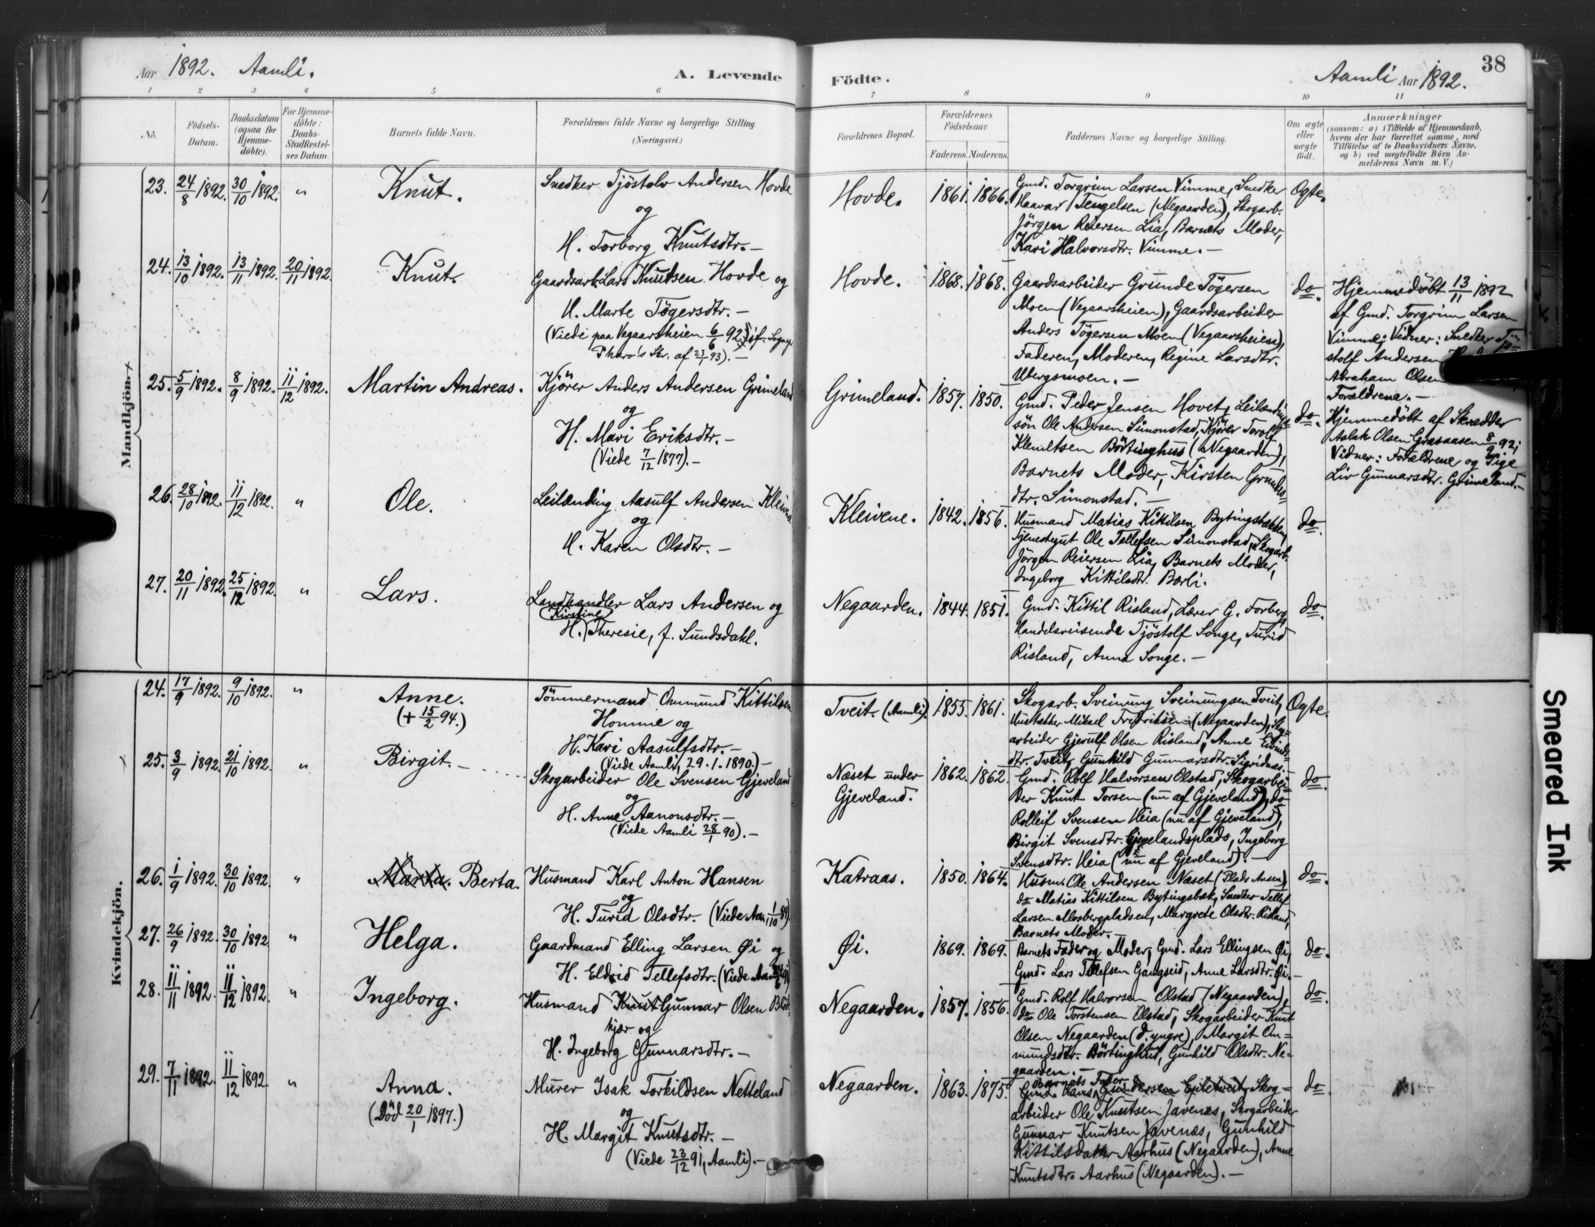 Aar 1892. Aamli. A. Levende Fødte. Aamli Aar 1892. 38
1 2 3 4 5 6 7 8 9 10 11
No. Fødsels-Datum. Daabsdatum (ogsaa for Hjemmedøbte). For Hjemmedøbte: Daabs-Stadfæstelses Datum Barnets fulde Navn. Forældrenes fulde Navne og borgerlige Stilling (Næringsvei.) Forældrenes Bopæl. Forældrenes Fødselsaar. Faderens. Moderens. Faddernes Navne og borgerlige Stilling. Om ægte eller uægte født. Anmærkninger (saasom: a) i Tilfælde af Hjemmedaab, hvem der har forrettet samme, med Tilføielse af to Daabsvidners Navne, og b) ved uægtefødte Børn Anmelderens Navn m. V.)
Mandkjøn.
23. 24/8 1892. 30/10 1892. " Knut. Snedker Tjöstolv Andersen Hovde
og
H. Torborg Knutsdtr. –
Hovde. 1861. 1866. Gmd. Torgrim Larsen Vimme, Snedker
Haavar Tengelsen (Negaarden), Skogarb.
Jörgen Reiersen Lia, Barnets Moder,
Kari Halvorsdtr. Vimme. –
Ægte.
24. 13/10 1892. 13/11 1892. 20/11 1892. Knut. Gaardsarb. Lars Knutsen Hovde og
H. Marte Tögersdtr. –
(Viede paa Vegaarsheien 6/6 92 jf. Sogn.
Hovde. 1868. 1868. Gaardsarbeider Grunde Tögersen
Moen (Vegaarsheien), Gaardsarbeider
Anders Tögersen Moen (Vegaarsheien),
Faderen, Moderen, Regine Larsdtr.
Ubergsmoen. –
do. Hjemmedöbt 13/11 1892
af Gmd. Torgrim Larsen
Vimme; Vidner: Snedker Tjö-
stolf Andersen
Abraham Olsen
Forældrene. –
25. 5/9 1892. 8/9 1892. 11/12 1892. Martin Andreas. Kjörer Anders Andersen Grimeland
og
H. Mari Eriksdtr. –
(Viede 7/12 1877). –
Grimeland. 1857. 1850. Gmd. Peder Jensen Hovet, Leilændings-
sön Ole Andersen Simonstad, Kjörer Torolf
Klemetsen Börtinghus (Negaarden),
Barnets Moder, Kirsten Grundes-
dtr. Simonstad. –
do. Hjemmedöbt af Skredder
Aslak Olsen Grasaasen 8/9 92;
Vidner: Forældrene og Pige
Liv Gunnarsdtr. Grimeland. –
26. 28/10 1892. 11/12 1892. " Ole. Leilænding Aasulf Andersen Kleivene
og
H. Karen Olsdtr. –
Kleivene. 1842. 1856. Husmand Matias Kittilsen Bytingsbækken,
Tjenestegut Ole Tellefsen Simonstad, Skogarb.
Jörgen Reiersen Lia, Barnets Moder,
Ingeborg Kittilsdtr. Barli.
do.
27. 20/11 1892. 25/12 1892. " Lars. Landhandler Lars Andersen og
Kirstine
H. Theresie, f. Sundsdahl.
Negaarden. 1844. 1851. Gmd. Kittil Risland, Lærer G. Forberg,
Handelsreisende Tjöstolf Songe, Turid
Risland, Anna Songe. –
do.
Kvindekjøn.
24. 17/9 1892. 9/10 1892. " Anne.
(+ 15/2 94.)
Tömmermand Ommund Kittilsen
Homme og
H. Kari Aasulfsdtr. –
(Viede Aamli, 29.1.1890.) –
Tveit. (Aamli). 1855. 1861. Skogarb. Sveinung Sveinungsen Tveit,
Mikael Fredriksen (Negaarden), Sko-
arbeider Gjerulf Olsen Risland, Anne
dtr. Tveit, Gunhild Gunnarsdtr. Sigridnes.
Ægte.
25. 3/9 1892. 21/10 1892. " Birgit. Skogarbeider Ole Svensen Gjeveland
og
H. Anne Aanonsdtr. –
(Viede Aamli 28/1 90). –
Næset under
Gjeveland.
1862. 1862. Gmd. Rolf Halvorsen Olstad, Skogarbei-
der Knut Torsen (nu af Gjeveland), do
Rolleif Svensen Heia (nu af Gjeveland),
Birgit Svensdtr. Gjevelandsplads, Ingeborg
Svensdtr. Heia (nu af Gjeveland). –
do.
26. 1/9 1892. 30/10 1892. " Marta. Berta. Husmand Karl Anton Hansen
og
H. Turid Olsdtr. (Viede Aamli 1/10 89)
Katraas. 1850. 1864. Husm. Ole Andersen Næset (Plads Aasen),
do Matias Kittilsen Bytingsbæk, Snedker Tellef
Larsen Mosbergpladsen, Margrete Olsdtr. Risland,
Barnets Moder.
do.
27. 26/9 1892. 30/10 1892. " Helga. Gaardmand Elling Larsen Øi og
H. Eldrid Tellefsdtr. (Viede Aamli
Øi. 1869. 1869. Barnets Fader og Moder, Gmd. Lars Ellingsen Øi,
Gmd. Lars Tellefsen Gangseid, Anne Larsdtr. Øi. –
do.
28. 11/11 1892. 11/12 1892. " Ingeborg. Husmand Knut Gunnar Olsen
kjær og
H. Ingeborg Gunnarsdtr. –
Negaarden. 1857. 1856. Gmd. Rolf Halvorsen Olstad (Negaarden),
do Ole Torstensen Olstad, Skogarbeider Knut
Olsen Negaarden (d. yngre), Margit Om-
mundsdtr. Börtinghus, Gunhild Olsdtr. Ne-
gaarden. –
do.
29. 7/11 1892. 11/12 1892. " Anna.
(Död 20/1 1897.)
Murer Isak Torkildsen Netteland
og
H. Margit Knutsdtr. –
(Viede 23/12 91, Aamli). –
Negaarden. 1863. 1875. Barnets Fader,
Gmd. Hans Gundersen Espetveit, Skog-
arbeider Ole Knutsen Javenæs, Skogarbeider
Gunnar Knutsen Javenæs, Gunhild
Kittilsdatter Aarhus (Negaarden), Anne
Knutsdtr. Aarhus (Negaarden). –
do.
Smeared Ink